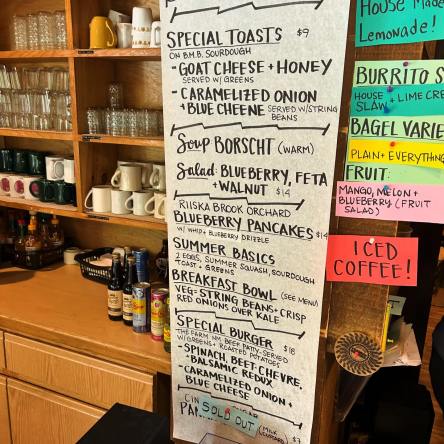 SPECIAL TOASTS $9
ON B.M.B. SOURDOUGH
- GOAT CHEESE + HONEY
SERVED W/ GREENS
- CARAMELIZED ONION
+ BLUE CHEENE SERVED W/STRING
BEANS
Soup BORSCHT (WARM)
Salad: BLUEBERRY, FETA
+ WALNUT $14
RIISKA BROOK ORCHARD
BLUEBERRY PANCAKES $14
W/ WHIP + BLUEBERRY DRIZZLE
SUMMER BASICS
2 EGGS, SUMMER SQUASH, SOURDOUGH
TOAST + GREENS
BREAKFAST BOWL (SEE MENU)
VEG- STRING BEANS + CRISP
RED ONIONS OVER KALE
SPECIAL BURGER $18
THE FARM, NM. BEEF PATTY - SERVED
W/ GREENS + ROASTED POTATOES
- SPINACH, BEET, CHEVRE,
BALSAMIC REDUX
- CARAMELIZED ONION +
BLUE CHEESE
SOLD OUT
HOUSE MADE
LEMONADE!
BURRITO
HOUSE + LIME
SLAW
BAGEL
PLAIN + EVERYTHING
FRUIT:
MANGO, MELON +
BLUEBERRY (FRUIT
SALAD)
ICED
COFFEE!